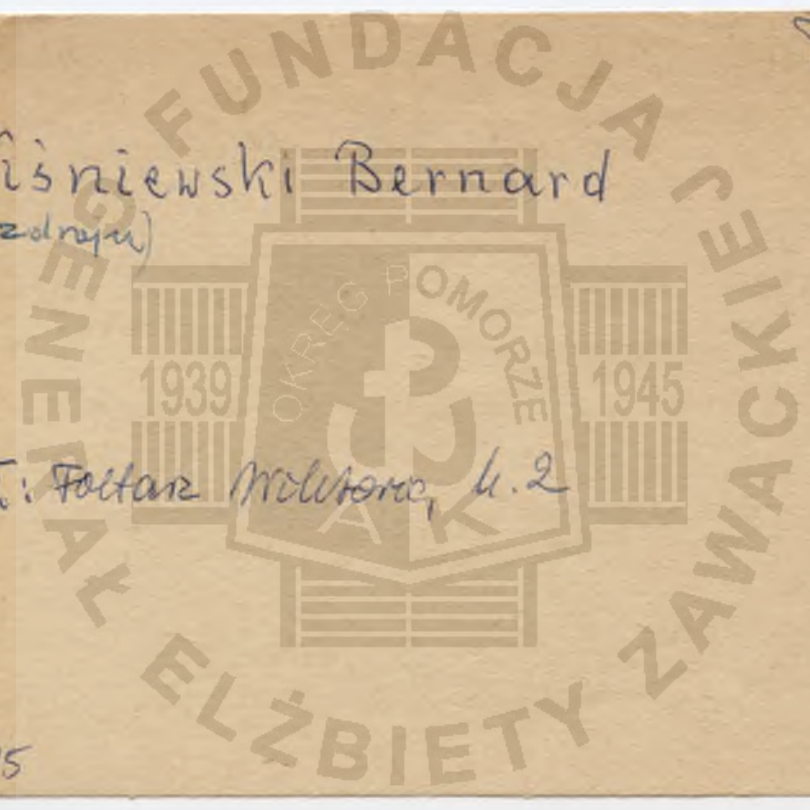 iśniewski Bernard
zdroju)
T: Fołtarz Wiktoria, k. 2
15
FUNDACJA
GENERAŁ ELŻBIETY ZAWACKIEJ
OKRĘG POMORZE
1939
1945
AK